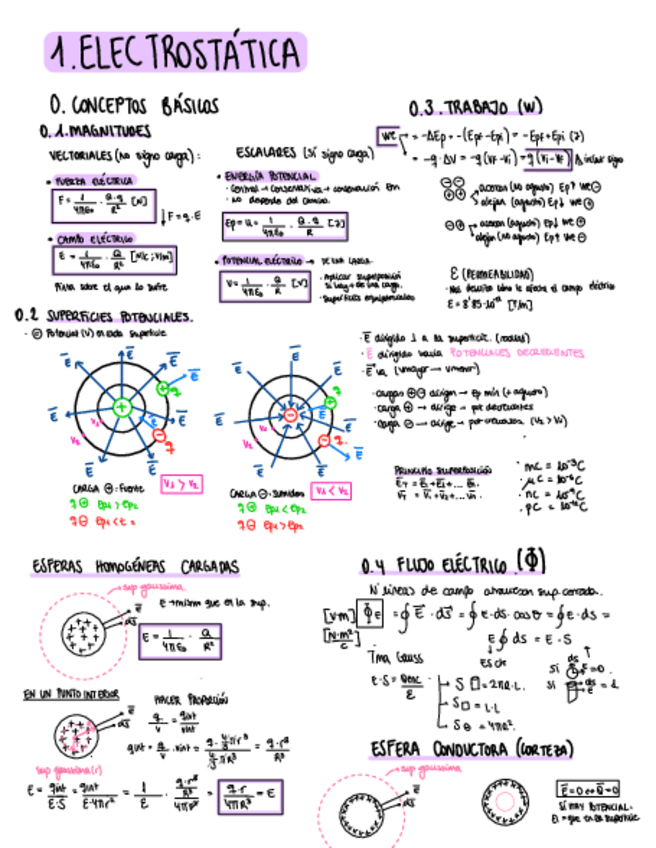 1. ELECTROSTÁTICA
0. CONCEPTOS BÁSICOS
0.1. MAGNITUDES
VECTORIALES (no signo carga):
• FUERZA ELÉCTRICA
F = 1/4πε₀ · Q·q/R² [N]
↓ F = q·E
• CAMPO ELÉCTRICO
E = 1/4πε₀ · Q/R² [N/C; V/m]
sobre el que lo sufre
ESCALARES (SÍ signo carga)
• ENERGÍA POTENCIAL
· Central → conservativa → conservación Em
· no depende del camino.
Ep = U = 1/4πε₀ · Q·q/R [J]
• POTENCIAL ELÉCTRICO → DE UNA CARGA
V = 1/4πε₀ · Q/R [V]
· Aplicar superposición
si hay + de una carga.
· Superficies equipotenciales
0.3. TRABAJO (W)
We = -ΔEp = -(Epf - Epi) = -Epf + Epi (J)
= -q·ΔV = -q(Vf - Vi) = q(Vi - Vf) incluir signo
⊕⊖ acercan (agusto) Ep↓ We⊕
alejan (no agusto) Ep↑ We⊖
ε (PERMEABILIDAD)
· Nos describe cómo le afecta el campo eléctrico
0.2 SUPERFICIES POTENCIALES.
· ⊜ Potencial (V) en cada superficie
E E E E E E E E
V₁ V₂ q q
CARGA ⊕: Fuente
V₁ > V₂
q⊕ Ep₁ > Ep₂
q⊖ Ep₁ <
E E E E E E E
V₁ V₂ q q
CARGA ⊖: Sumidero
V₁ < V₂
q⊕ Ep₁ < Ep₂
q⊖ Ep₁ > Ep₂
· E dirigido ⊥ a la superficie. (radial)
· E dirigido hacia POTENCIALES DECRECIENTES
· E va (Vmayor → Vmenor)
· cargas ⊕⊖ dirigen → Ep mín (+ agusto)
· carga ⊕ → dirige → pot decreciente
· carga ⊖ → dirige → pot crecientes (V₂ > V₁)
PRINCIPIO SUPERPOSICIÓN
ET = E₁ + E₂ + ... En.
VT = V₁ + V₂ + ... Vn.
· mC = 10⁻³C
· μC = 10⁻⁶C
· nC = 10⁻⁹C
· pC = 10⁻¹²C
ESFERAS HOMOGÉNEAS CARGADAS
sup gaussiana.
E → mismo que en la sup.
E
ds
E = 1/4πε₀ · Q/R²
EN UN PUNTO INTERIOR
E
ds
sup gaussiana (r)
HACER PROPORCIÓN
q/V = qint/Vint
qint = q/V · Vint = q · 4/3πr³ / 4/3πR³ = q·r³/R³
E = qint/E·S = qint/E·4πr² = 1/E · q·r³/R³ / 4πr² = q·r/4πR³ = E
0.4 FLUJO ELÉCTRICO (Φ)
Nº líneas de campo atraviesan sup. cerrada.
[V·m] [N·m²/C] Φe = ∮E·ds = ∮E·ds·cosθ = ∮E·ds =
E∮ds = E·S
ES cte
Tma Gauss
E·S = Qenc/ε
S = 2πR·L.
S□ = L·L
S = 4πR².
ESFERA CONDUCTORA (CORTEZA)
sup gaussiana
E
ds
E = 0 ↔ Q = 0
SÍ HAY POTENCIAL.
superficie